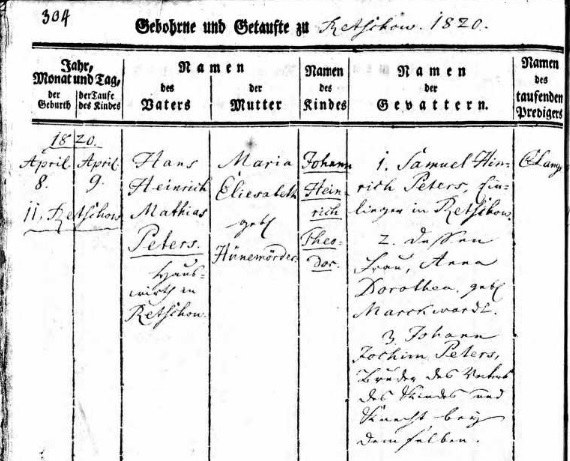 304
Gebohrne und Getaufte zu Retschow. 1820.
Jahr,
Monat und Tag,
der
Geburth
der Taufe
des Kindes
Namen
des
Vaters
der
Mutter
Namen
des
Kindes
Namen
der
Gevattern.
Namen
des
taufenden
Predigers
1820.
April
8.
April
9.
11. Retschow
Hans
Heinrich
Mathias
Peters.
Haus-
wirth in
Retschow.
Maria
Eliesabeth
geb
Hünemörder
Johann
Hein
rich
Theo-
dor.
1. Samuel Hin-
rich Peters, Ein-
lieger in Retschow.
2. Dessen
Frau, Anna
Dorothea, geb
Marckwardt.
3. Johann
Jochim Peters,
Bruder des Vaters
des Kindes und
Knecht bey
demselben.